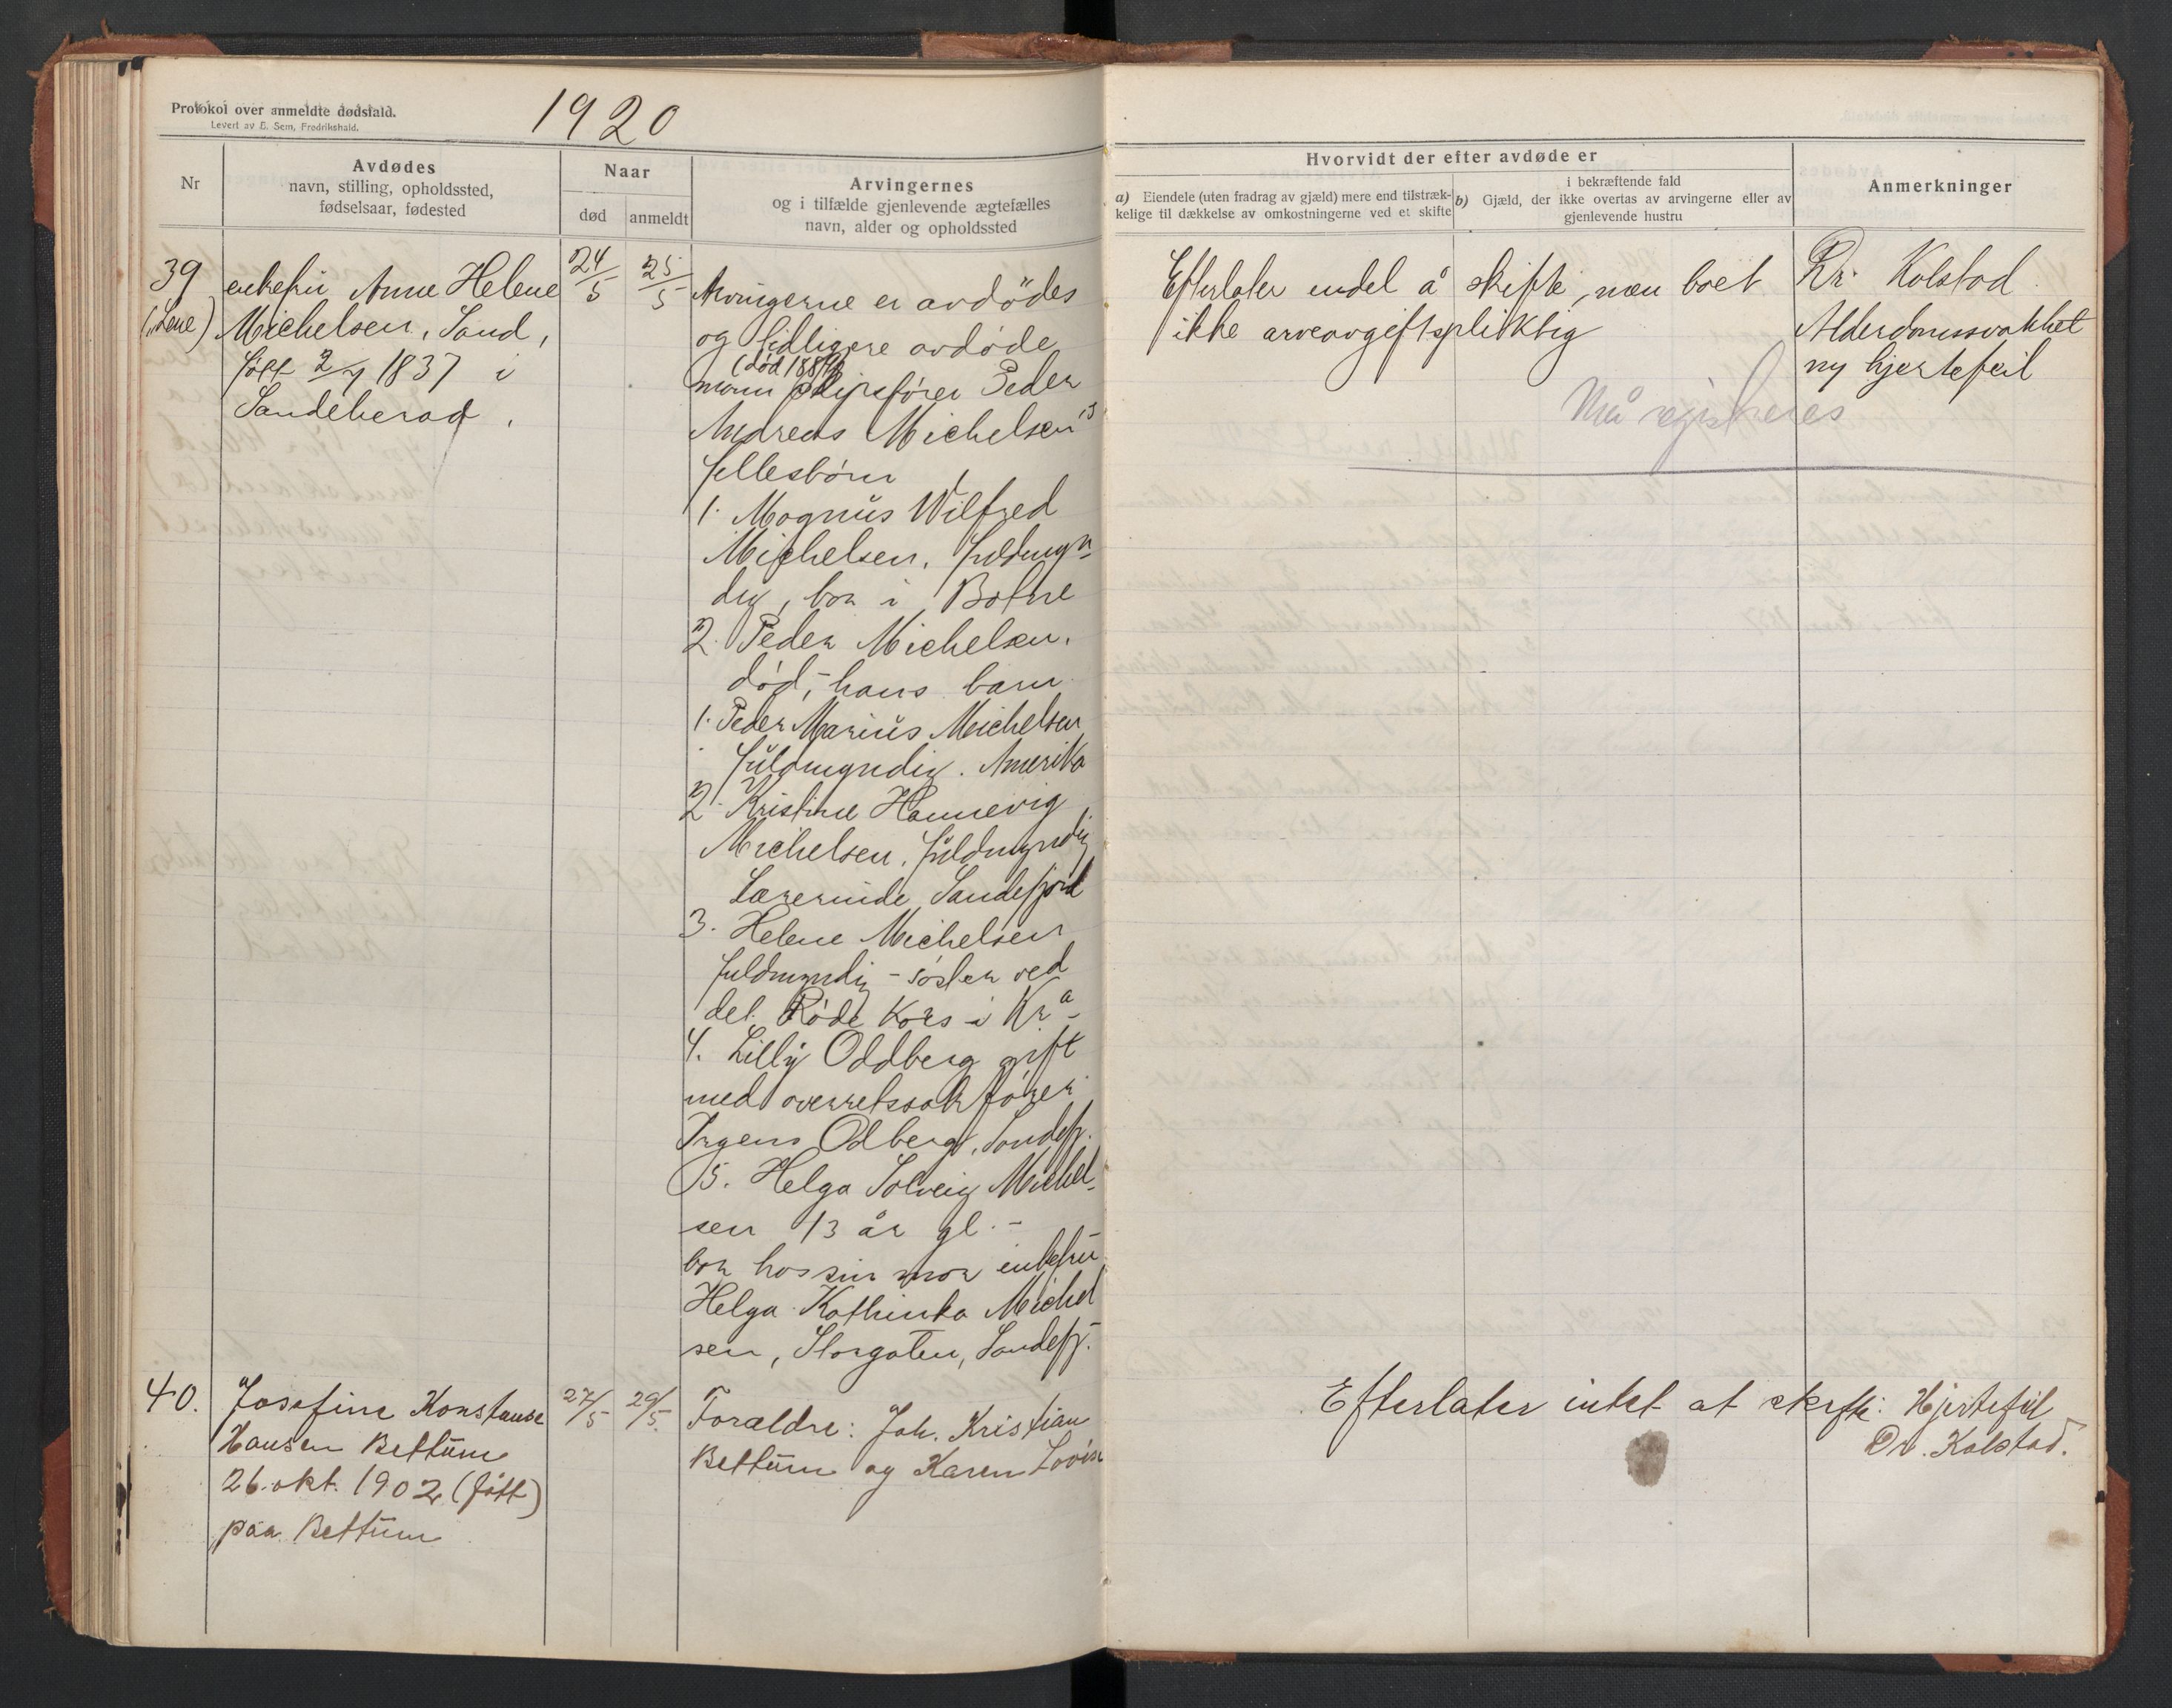 Protokol over anmeldte dødsfald.
Levert av E. Sem, Fredrikshald.
1920
Nr
Avdødes
navn, stilling, opholdssted,
fødselsaar, fødested
Naar
død
anmeldt
Arvingernes
og i tilfælde gjenlevende ægtefælles
navn, alder og opholdssted
Hvorvidt der efter avdøde er
a) Eiendele (uten fradrag av gjæld) mere end tilstræk-
kelige til dækkelse av omkostningerne ved et skifte
b) Gjæld, der ikke overtas av arvingerne eller av
i bekræftende fald
gjenlevende hustru
Anmerkninger
39
(Lene)
enkefru Anne Helene
Michelsen, Sand,
født 2/7 1837 i
Sandeherad.
24/5
25/5
Arvingerne er avdødes
og tidligere avdøde
(død 188
mann skipsfører Peder
Andreas Michelsen's
fellesbørn
1. Magnus Wilfred
Michelsen, fuldmyn-
dig, bor i Botne
2. Peder Michelsen,
død, - hans barn
1. Peder Marius Michelsen
fuldmyndig. Amerika
2. Kristine Hannevig
Michelsen, fuldmyndig
Lærerinde Sandefjord
3. Helene Michelsen
fuldmyndig - søster ved
det Røde Kors i Kr.a -
4. Lilly Oddberg gift
med overretssakfører
Irgens Odberg, Sandefj.
5. Helga Solveig Michel-
sen 13 år gl. -
bor hos sin mor enkefru
Helga Kathinka Michel
sen, Storgaten, Sandefj.
Efterlater endel å skifte, men boet
ikke arveavgiftspliktig
Må registreres
Dr. Kolstad
Alderdomssvakhet
ny hjertefeil
40.
Josefine Konstanse
Hansen Bettum
26. okt. 1902 (født)
paa Bettum
27/5
29/5
Forældre: Joh. Kristian
Bettum og Karen Lovise
Efterlater intet at skifte.
Hjertefeil
Dr. Kolstad.